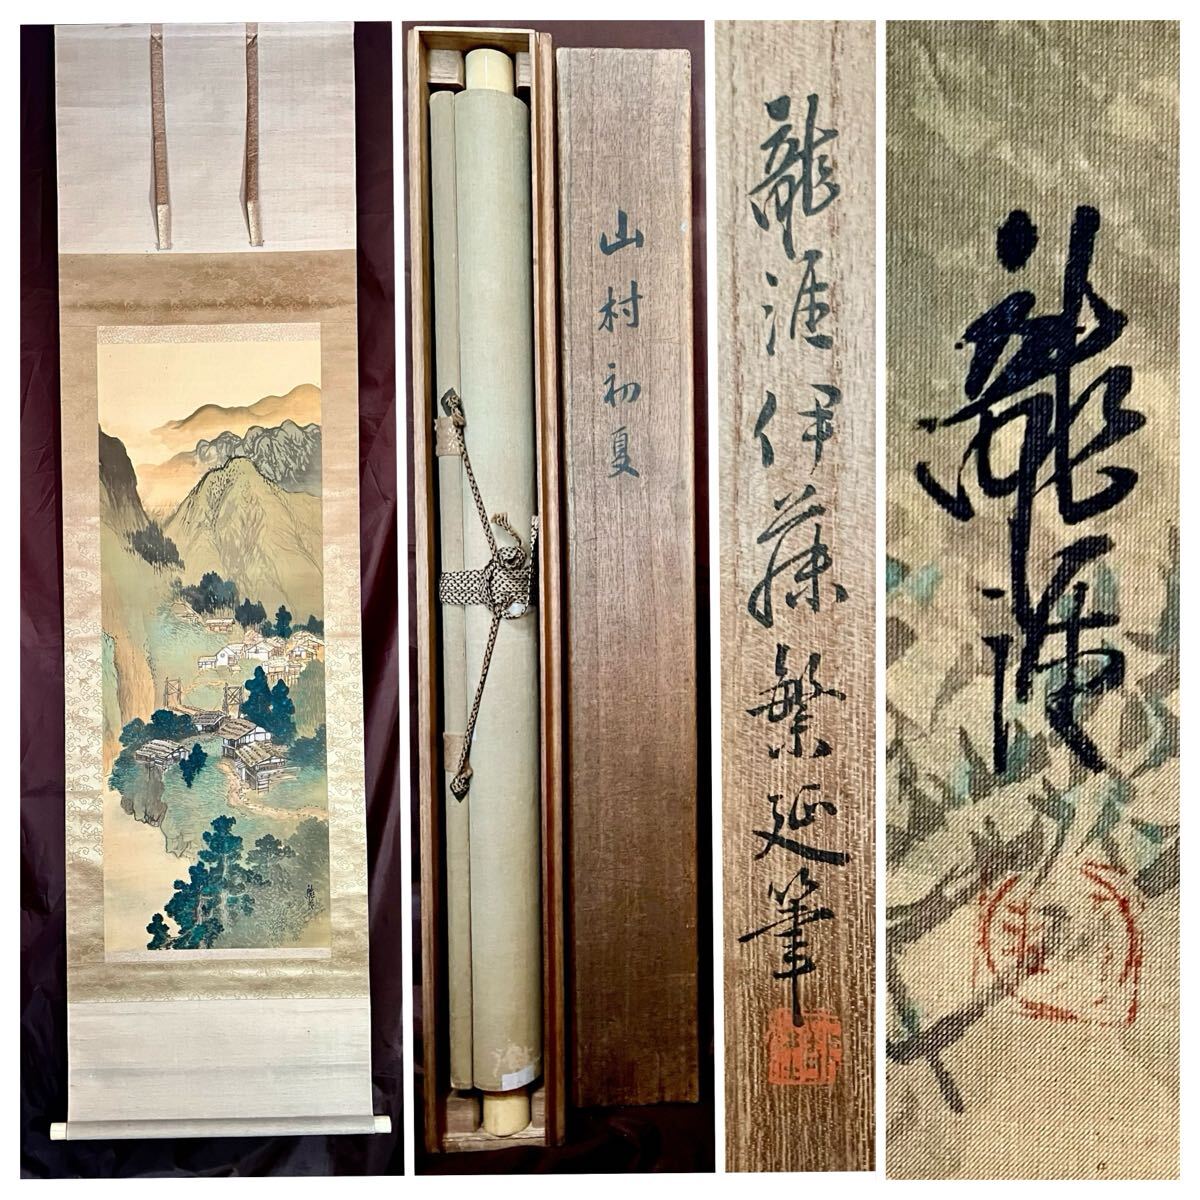 山村初夏
龍涯伊藤繁延筆
龍涯